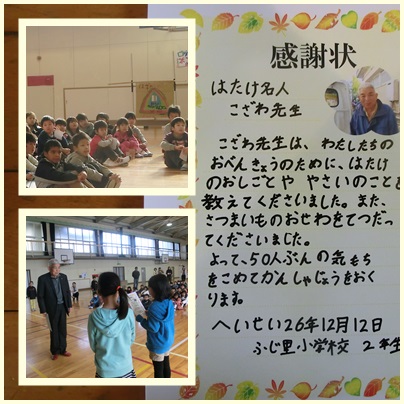 感謝状
はたけ名人
こざわ先生
こざわ先生は、わたしたちの
おべんきょうのために、はたけ
のおしごとや やさいのことを
教えてくださいました。また、
さつまいものおせわをてつだっ
てくださいました。
よって、50人ぶんの気もち
をこめてかんしゃじょうをおく
ります。
へいせい26年12月12日
ふじ里小学校 2年生